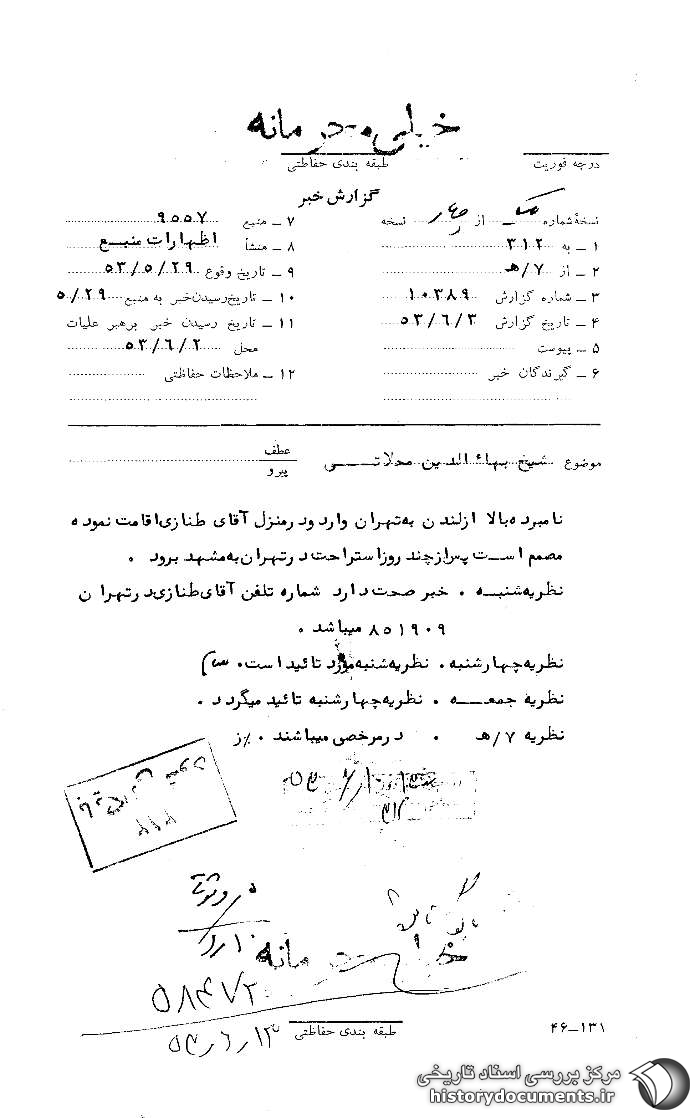 خیلی محرمانه
درجه فوریت طبقه بندی حفاظتی
گزارش خبر
نسخهٔ شماره یک از چهار نسخه
۱ – به ۳۱۲
۲ – از ۷/هـ
۳ – شماره گزارش ۱۰۳۸۹
۴ – تاریخ گزارش ۵۳/۶/۳
۵ – پیوست
۶ – گیرندگان خبر
۷ – منبع ۹۵۵۷
۸ – منشأ اظهارات منبع
۹ – تاریخ وقوع ۵۳/۵/۲۹
۱۰ – تاریخ رسیدن خبر به منبع ۵/۲۹
۱۱ – تاریخ رسیدن خبر برهبر علیات
محل ۵۳/۶/۲
۱۲ – ملاحظات حفاظتی
موضوع شیخ بهاءالدین محلاتی
عطف
پیرو
نامبرده بالا از لندن به تهران وارد و در منزل آقای طنازی اقامت نموده
مصمم است پس از چند روز استراحت در تهران به مشهد برود .
نظریه شنبه . خبر صحت دارد شماره تلفن آقای طنازی در تهران
۸۵۱۹۰۹ میباشد .
نظریه چهارشنبه . نظریه شنبه مورد تائید است .
نظریه جمعه . نظریه چهارشنبه تائید میگردد .
نظریه ۷/هـ . در مرخصی میباشند .
۳۱۲
خیلی محرمانه
طبقه بندی حفاظتی
۴۶–۱۳۱
مرکز بررسی اسناد تاریخی
historydocuments.ir